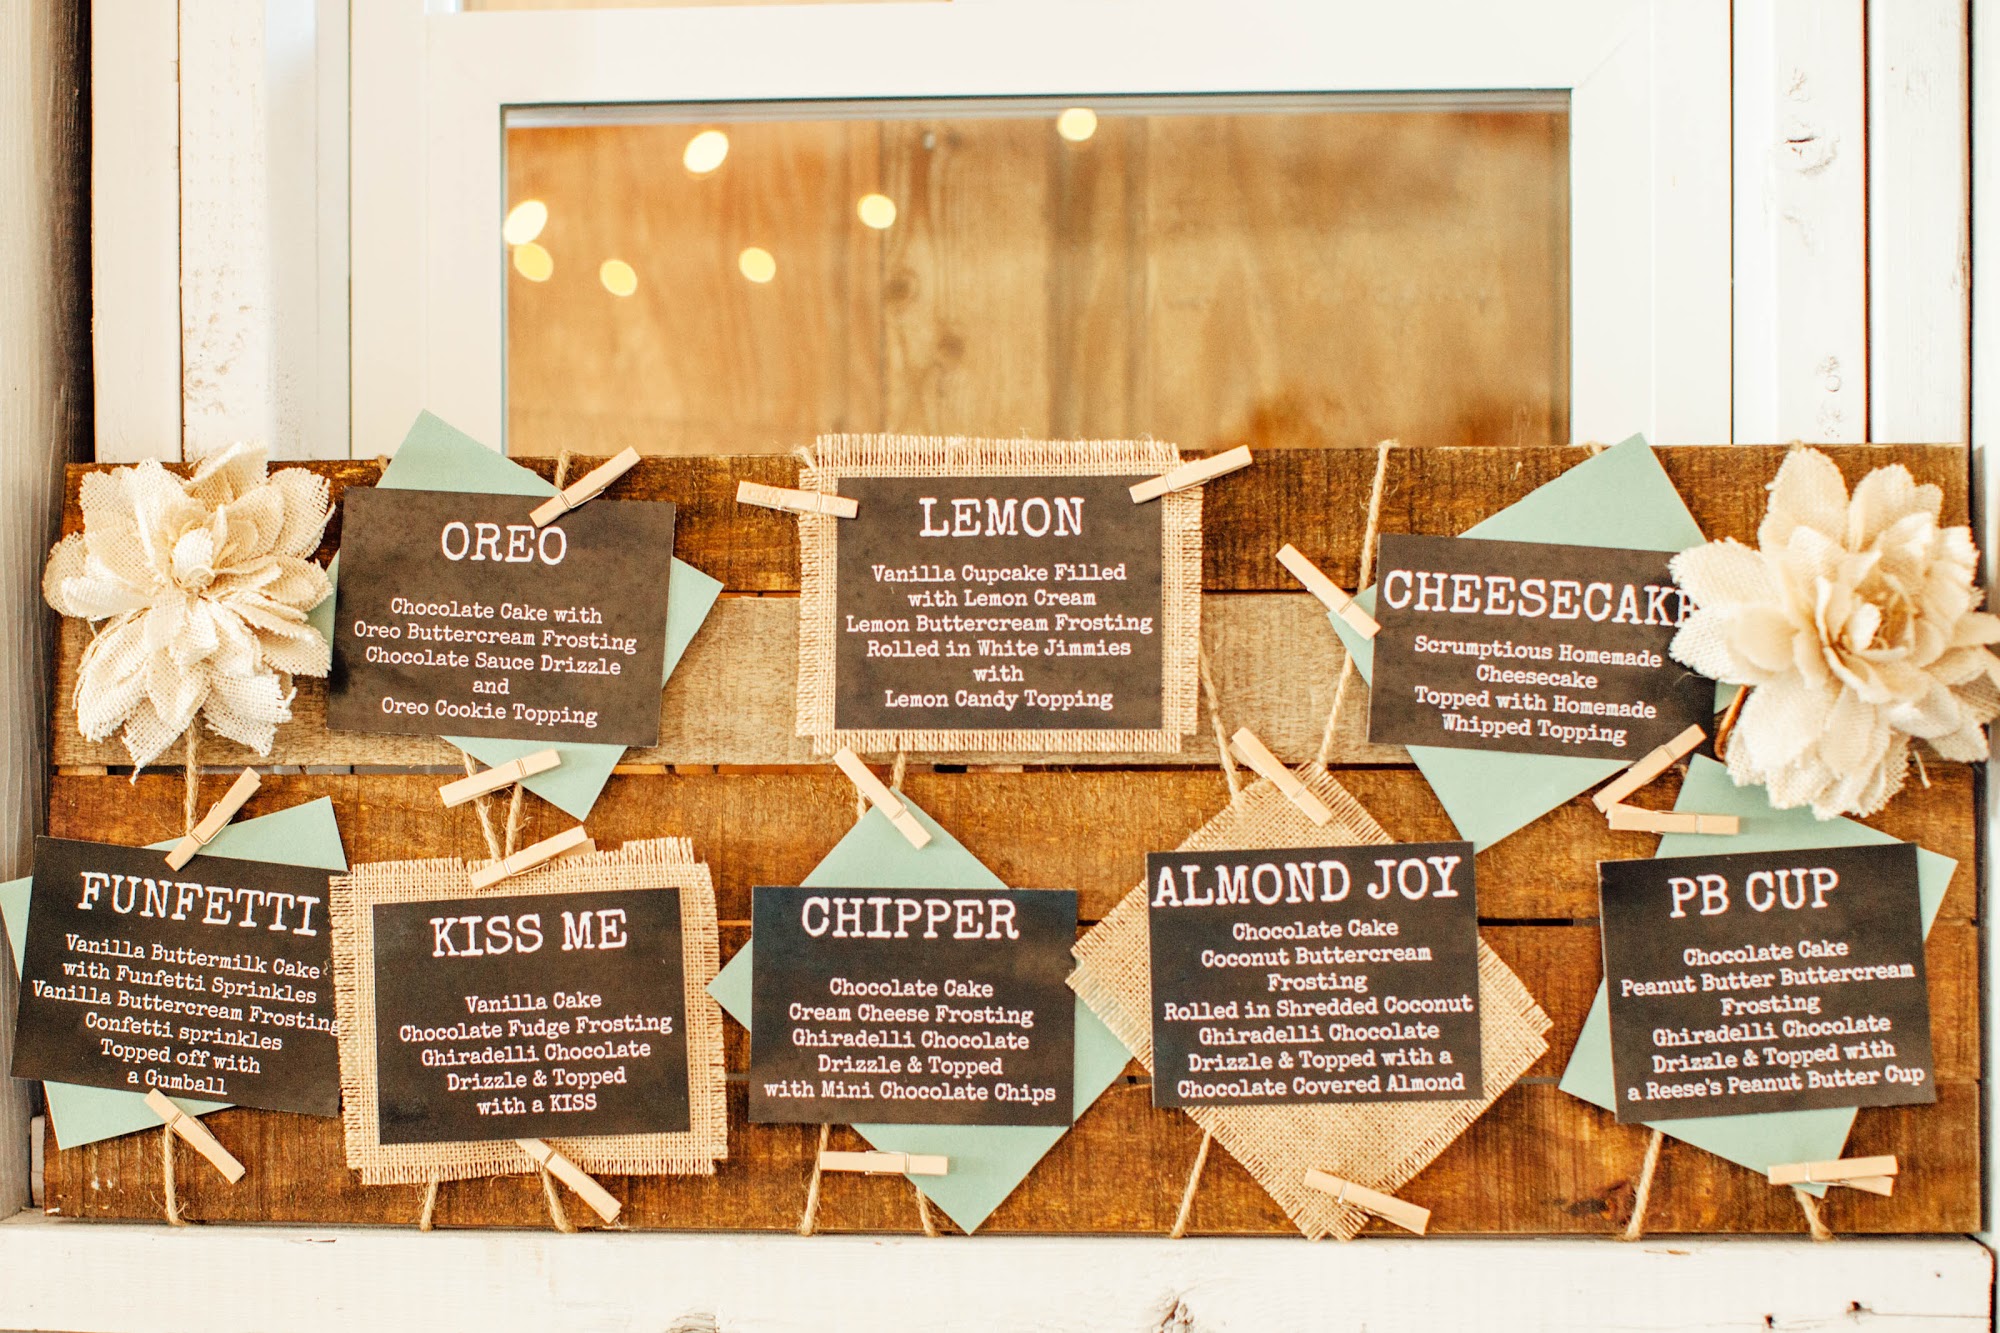 OREO
Chocolate Cake with
Oreo Buttercream Frosting
Chocolate Sauce Drizzle
and
Oreo Cookie Topping
LEMON
Vanilla Cupcake Filled
with Lemon Cream
Lemon Buttercream Frosting
Rolled in White Jimmies
with
Lemon Candy Topping
CHEESECAKE
Scrumptious Homemade
Cheesecake
Topped with Homemade
Whipped Topping
FUNFETTI
Vanilla Buttermilk Cake
with Funfetti Sprinkles
Vanilla Buttercream Frosting
Confetti sprinkles
Topped off with
a Gumball
KISS ME
Vanilla Cake
Chocolate Fudge Frosting
Ghiradelli Chocolate
Drizzle & Topped
with a KISS
CHIPPER
Chocolate Cake
Cream Cheese Frosting
Ghiradelli Chocolate
Drizzle & Topped
with Mini Chocolate Chips
ALMOND JOY
Chocolate Cake
Coconut Buttercream
Frosting
Rolled in Shredded Coconut
Ghiradelli Chocolate
Drizzle & Topped with a
Chocolate Covered Almond
PB CUP
Chocolate Cake
Peanut Butter Buttercream
Frosting
Ghiradelli Chocolate
Drizzle & Topped with
a Reese's Peanut Butter Cup